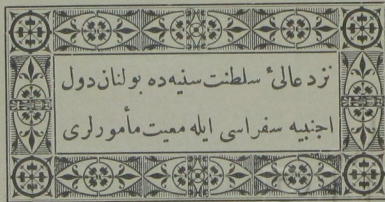 نزد عالئ سلطنت سنيه‌ده بولنان دول
اجنبيه سفراسى ايله معيت مأمورلرى